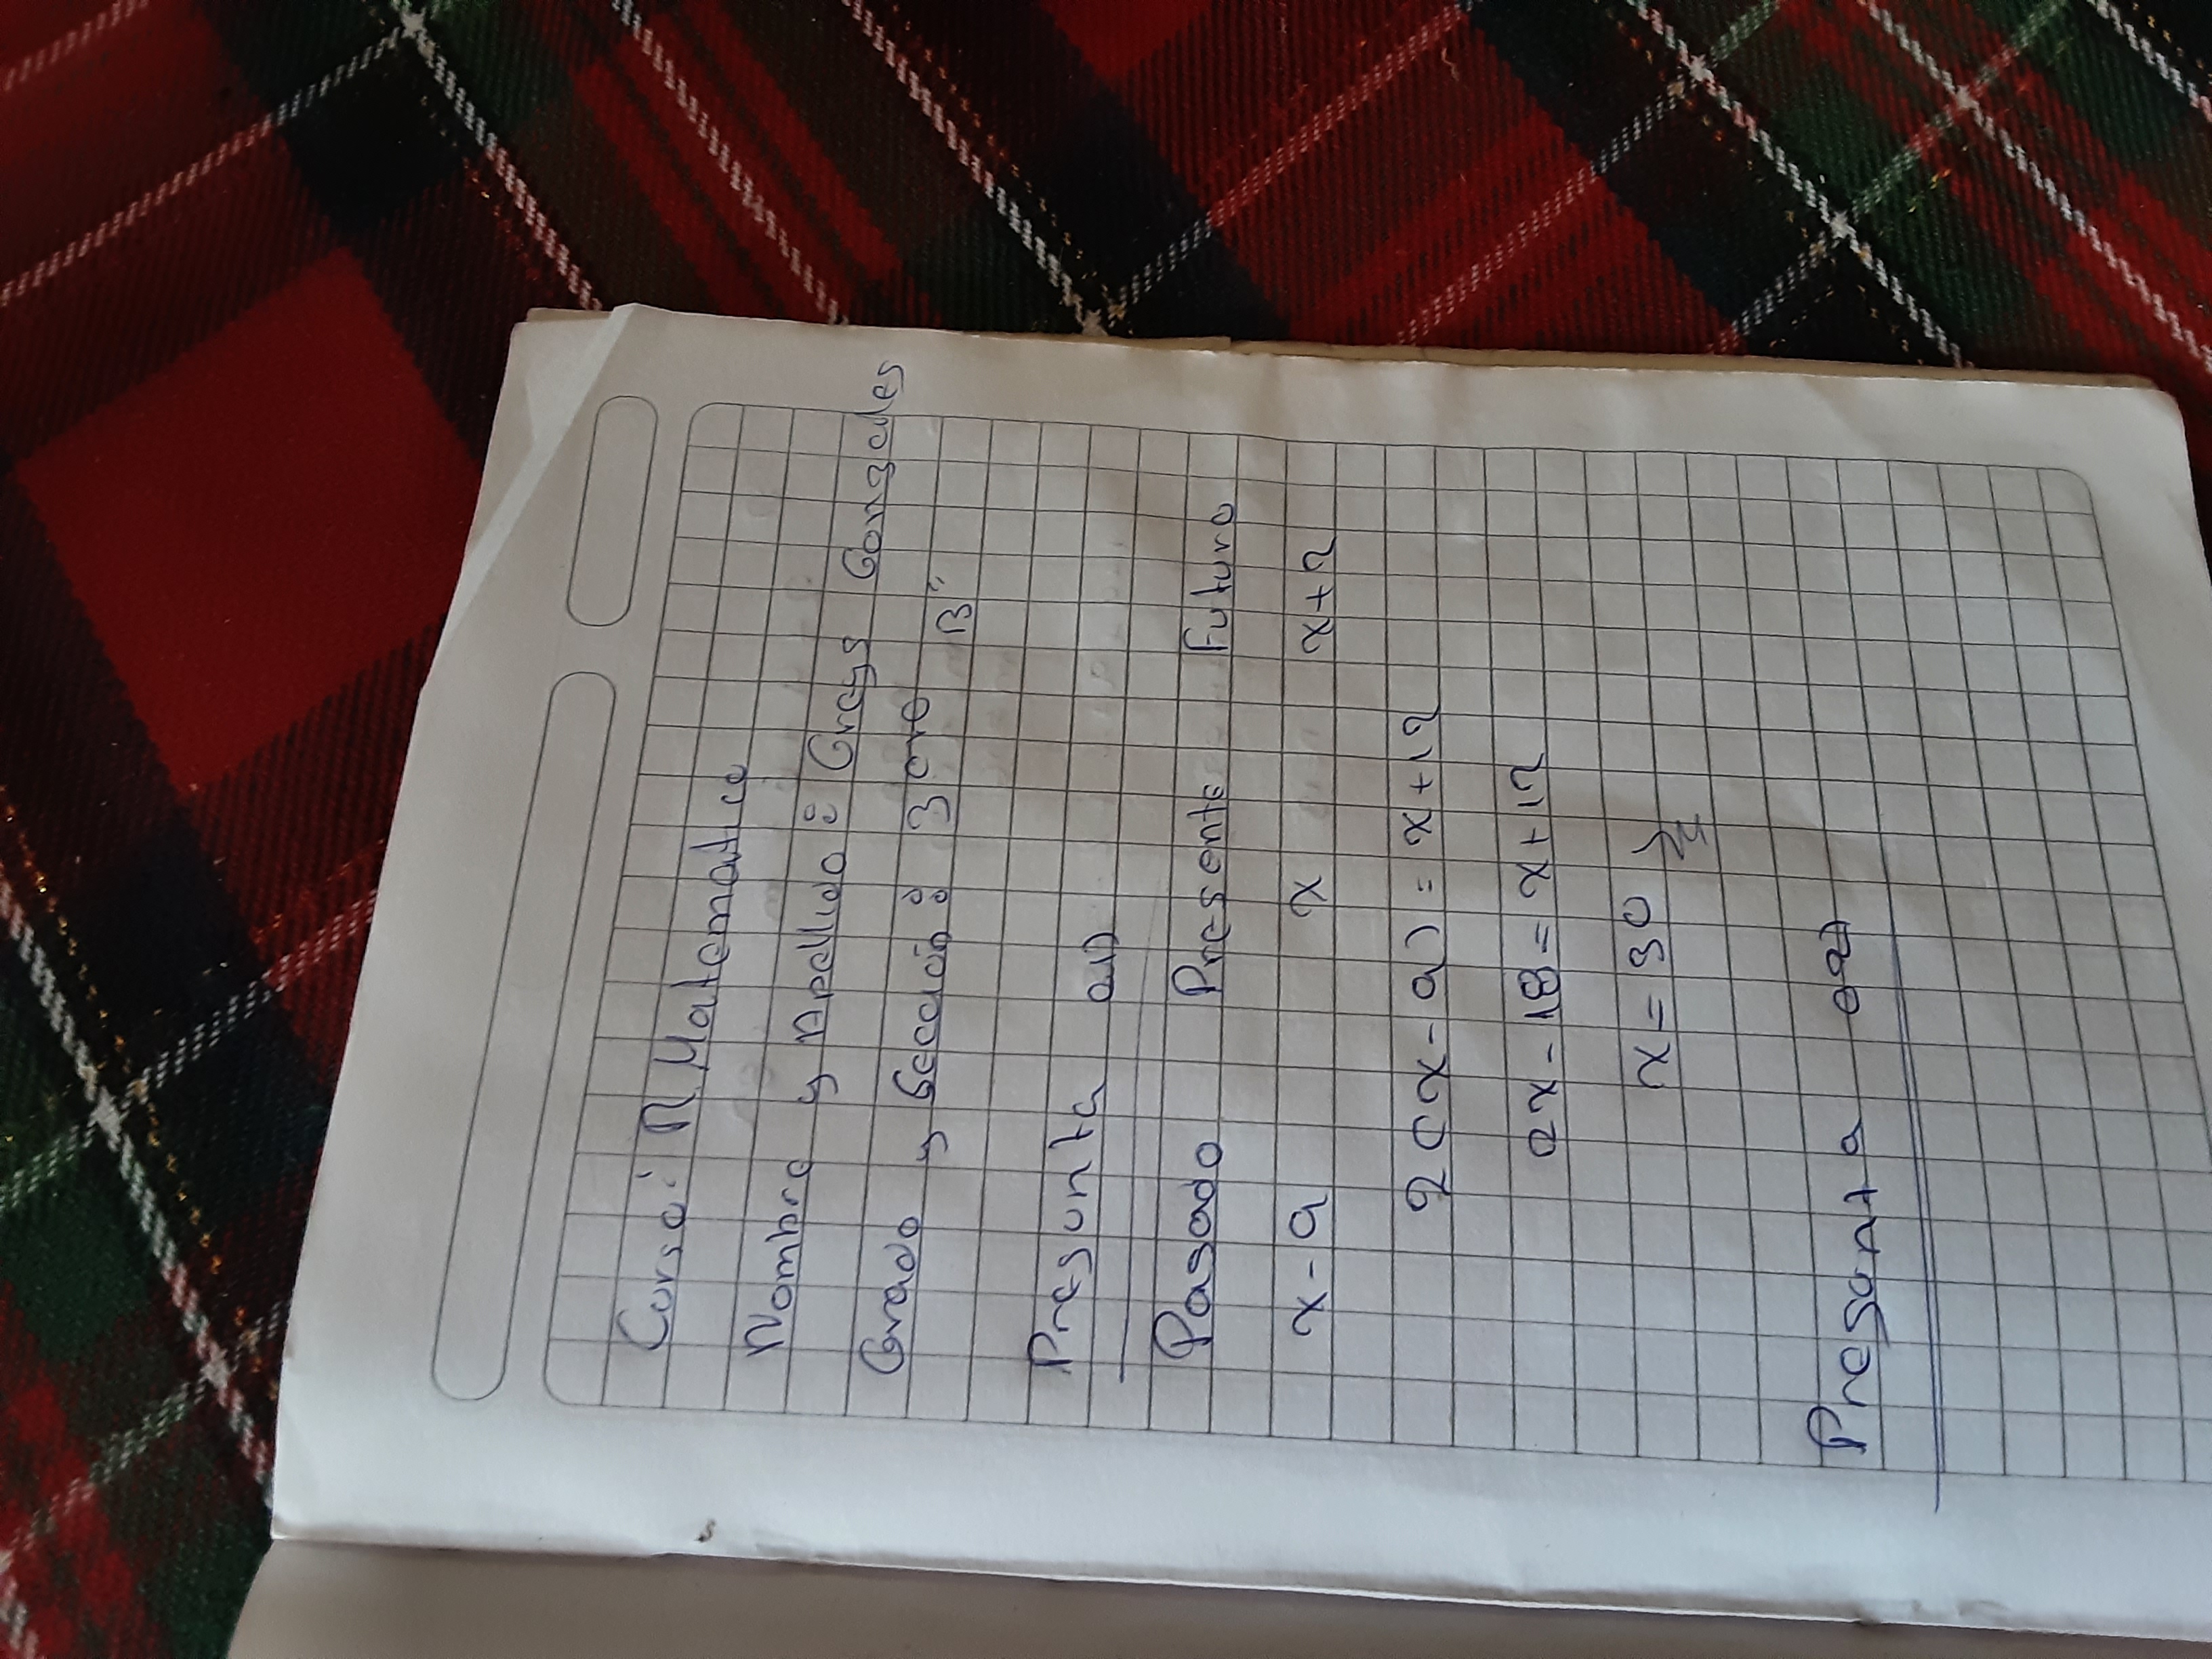 Curso: R. Matematico
Nombre y Apellido: Greys Gonzales
Grado y Sección: 3 ero "B"
Pregunta 01)
Pasado Presente Futuro
x-9 x x+2
2(x-9)=x+12
2x-18=x+12
x=30
Pregunta 02)